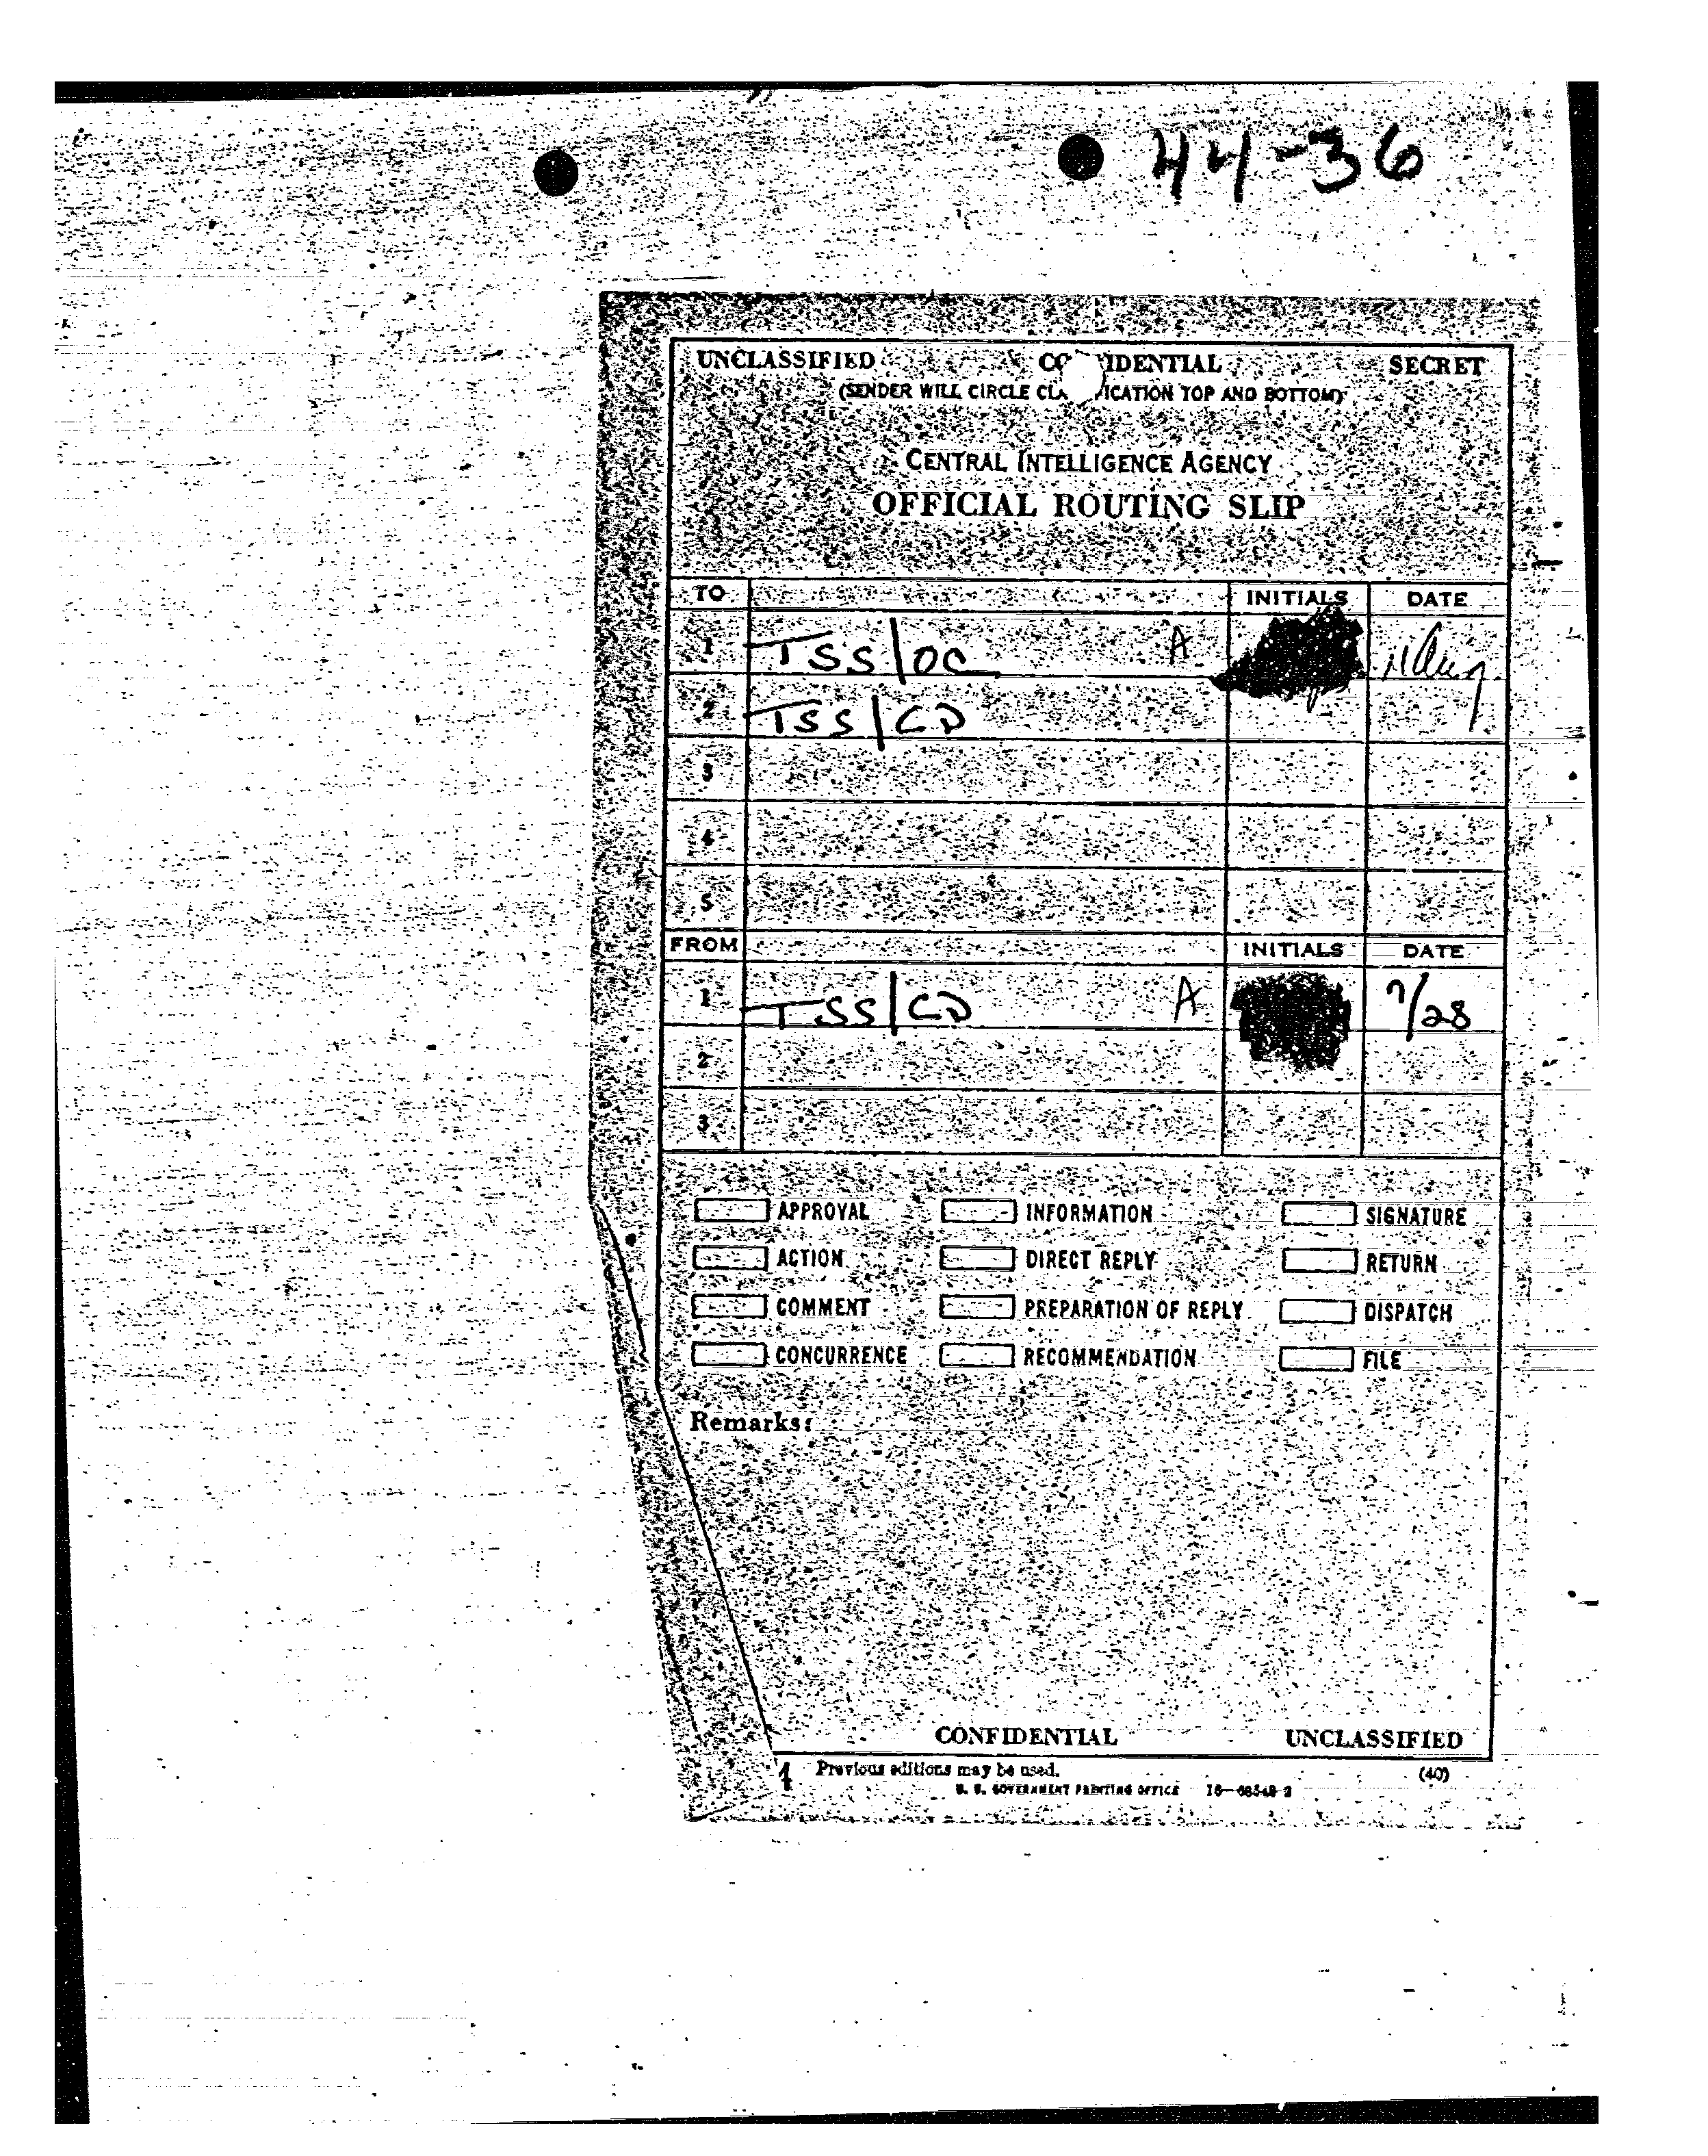 44-36
UNCLASSIFIED CO IDENTIAL SECRET
(SENDER WILL CIRCLE CLA ICATION TOP AND BOTTOM)
CENTRAL INTELLIGENCE AGENCY
OFFICIAL ROUTING SLIP
TO INITIALS DATE
1 TSS/OC A 11 Aug
2 TSS/CD
3
4
5
FROM INITIALS DATE
1 TSS/CD A 7/28
2
3
APPROVAL INFORMATION SIGNATURE
ACTION DIRECT REPLY RETURN
COMMENT PREPARATION OF REPLY DISPATCH
CONCURRENCE RECOMMENDATION FILE
Remarks:
CONFIDENTIAL UNCLASSIFIED
Previous editions may be used. (40)
U. S. GOVERNMENT PRINTING OFFICE